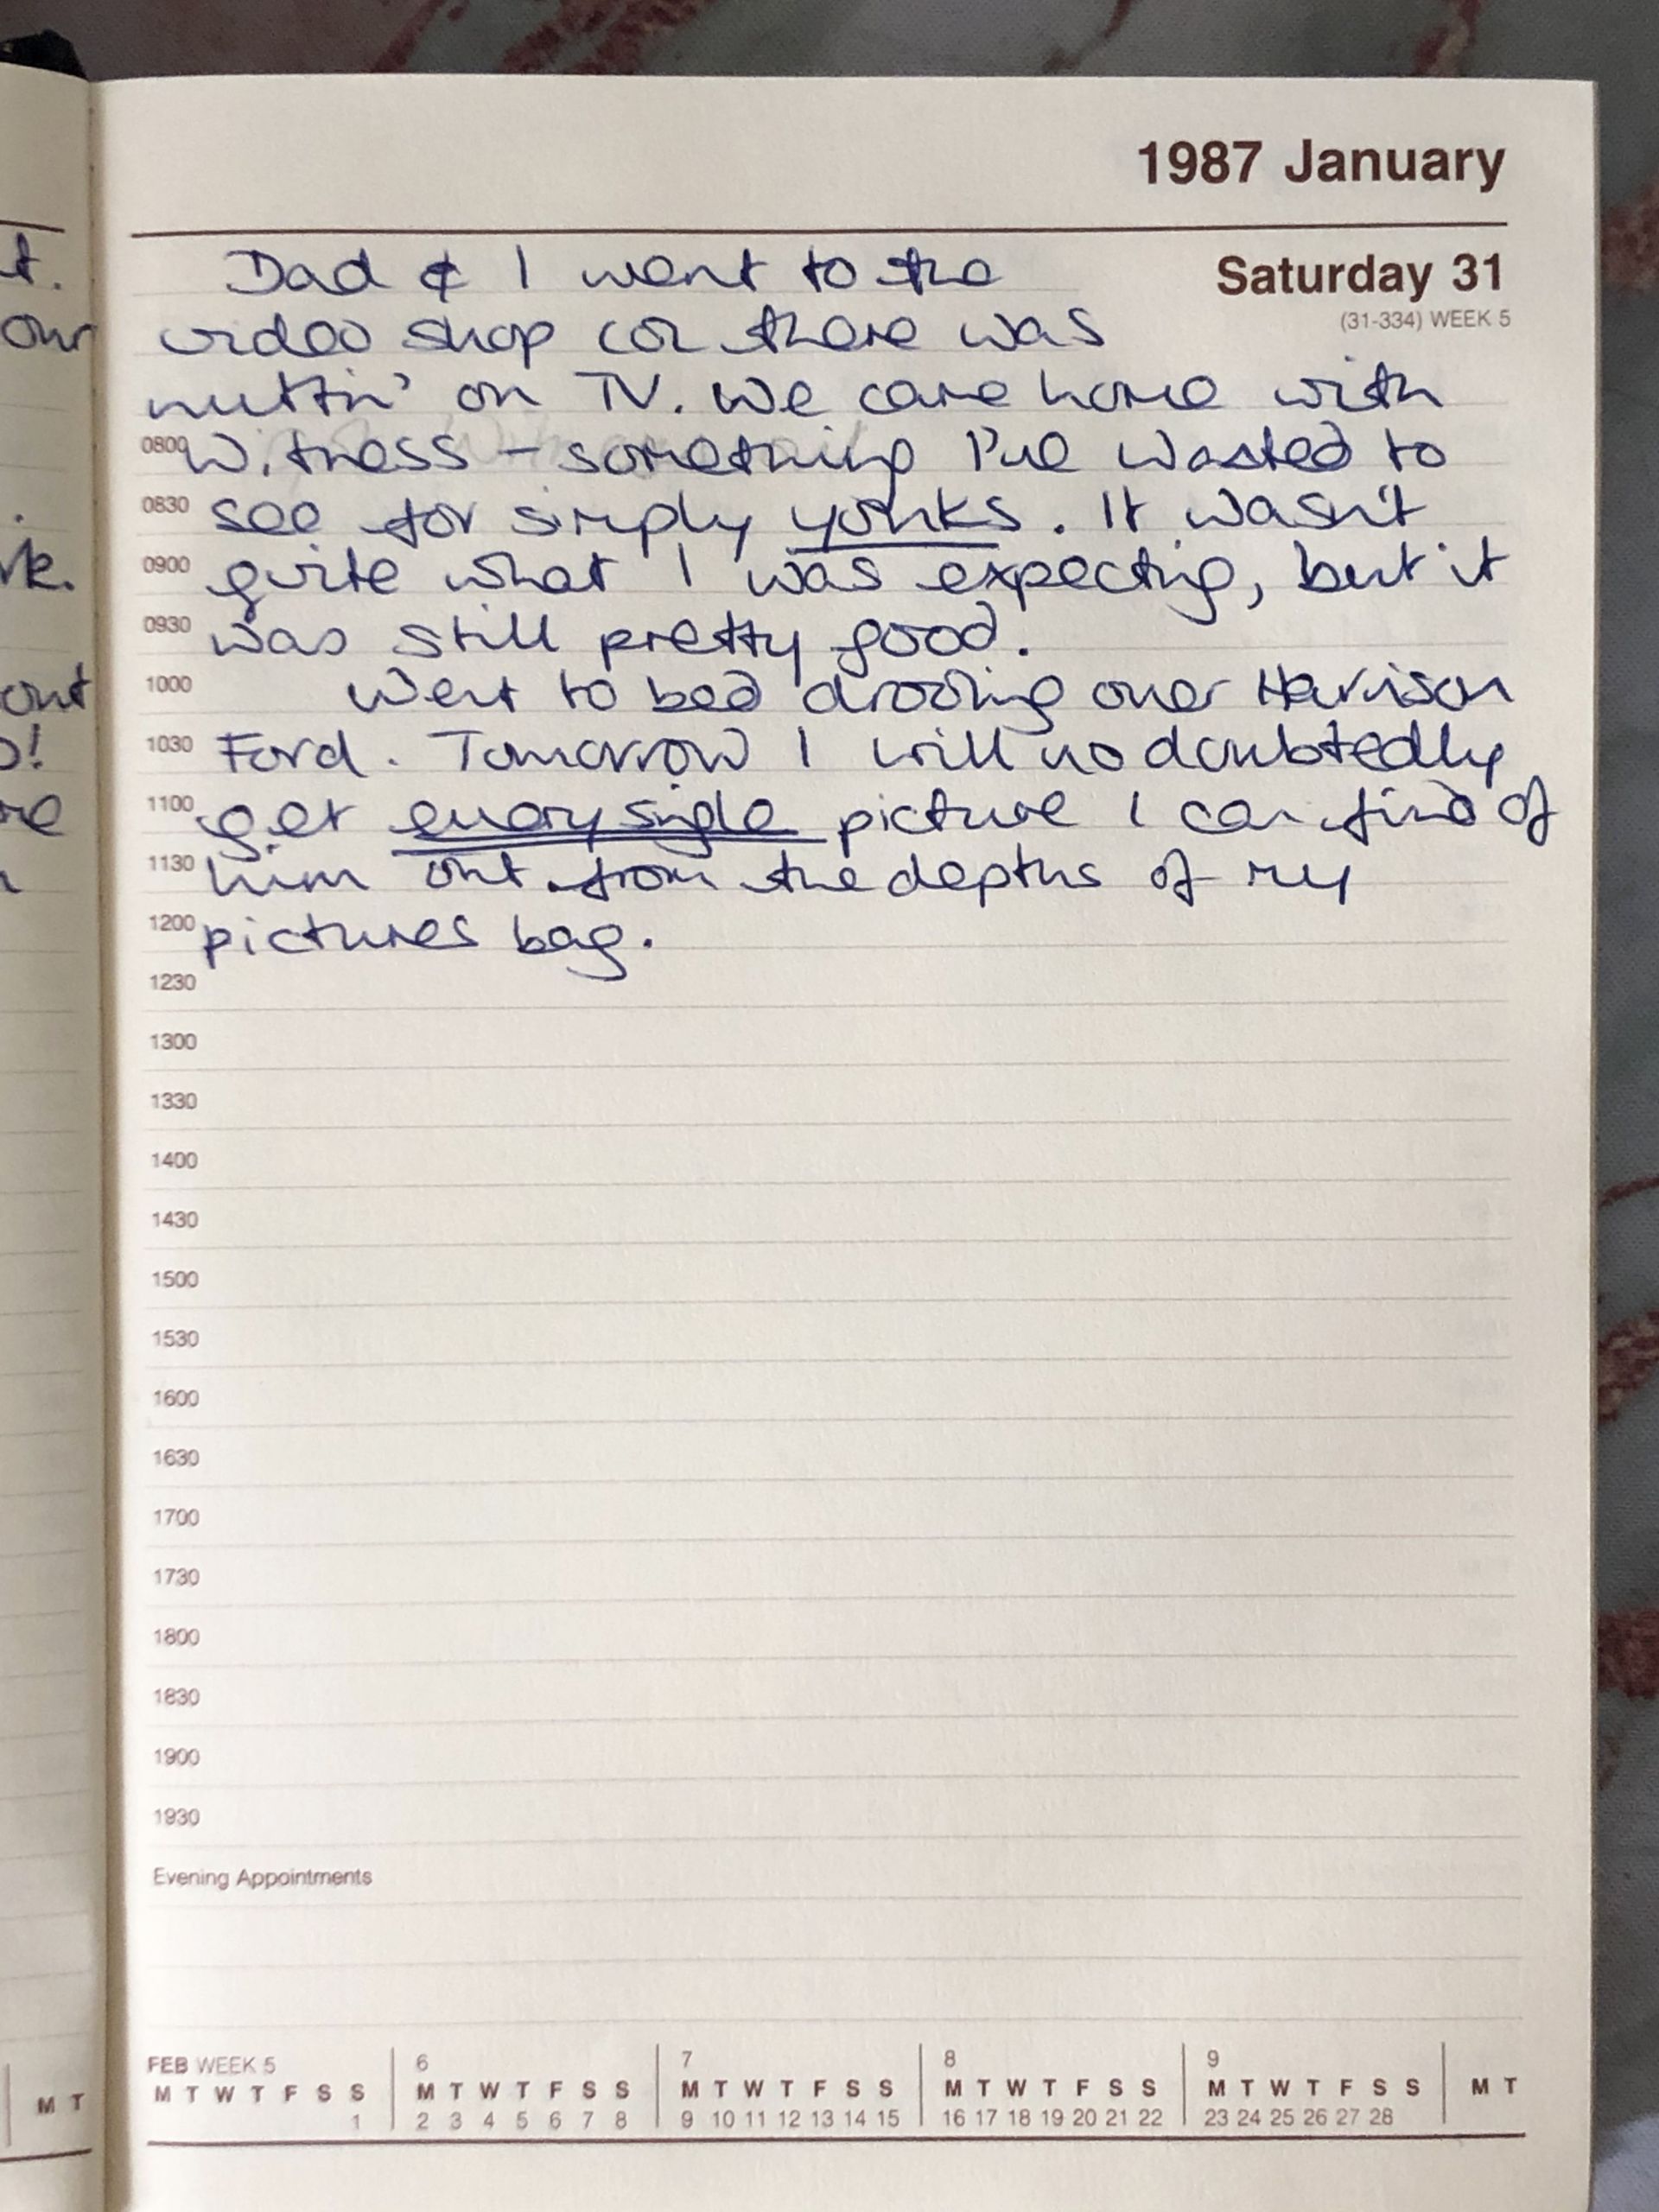 t.
our
rk.
out
o!
re
n
M T
1987 January
Saturday 31
(31-334) WEEK 5
Dad & I went to the
video shop coz there was
nuttin' on TV. We came home with
0800 Witness – something I've wanted to
0830 see for simply yonks. It wasn't
0900 quite what I was expecting, but it
0930 was still pretty good.
1000 Went to bed drooling over Harrison
1030 Ford. Tomorrow I will no doubtedly
1100 get every single picture I can find of
1130 him out from the depths of my
1200 pictures bag.
1230
1300
1330
1400
1430
1500
1530
1600
1630
1700
1730
1800
1830
1900
1930
Evening Appointments
FEB WEEK 5 6 7 8 9
M T W T F S S M T W T F S S M T W T F S S M T W T F S S M T W T F S S M T
1 2 3 4 5 6 7 8 9 10 11 12 13 14 15 16 17 18 19 20 21 22 23 24 25 26 27 28